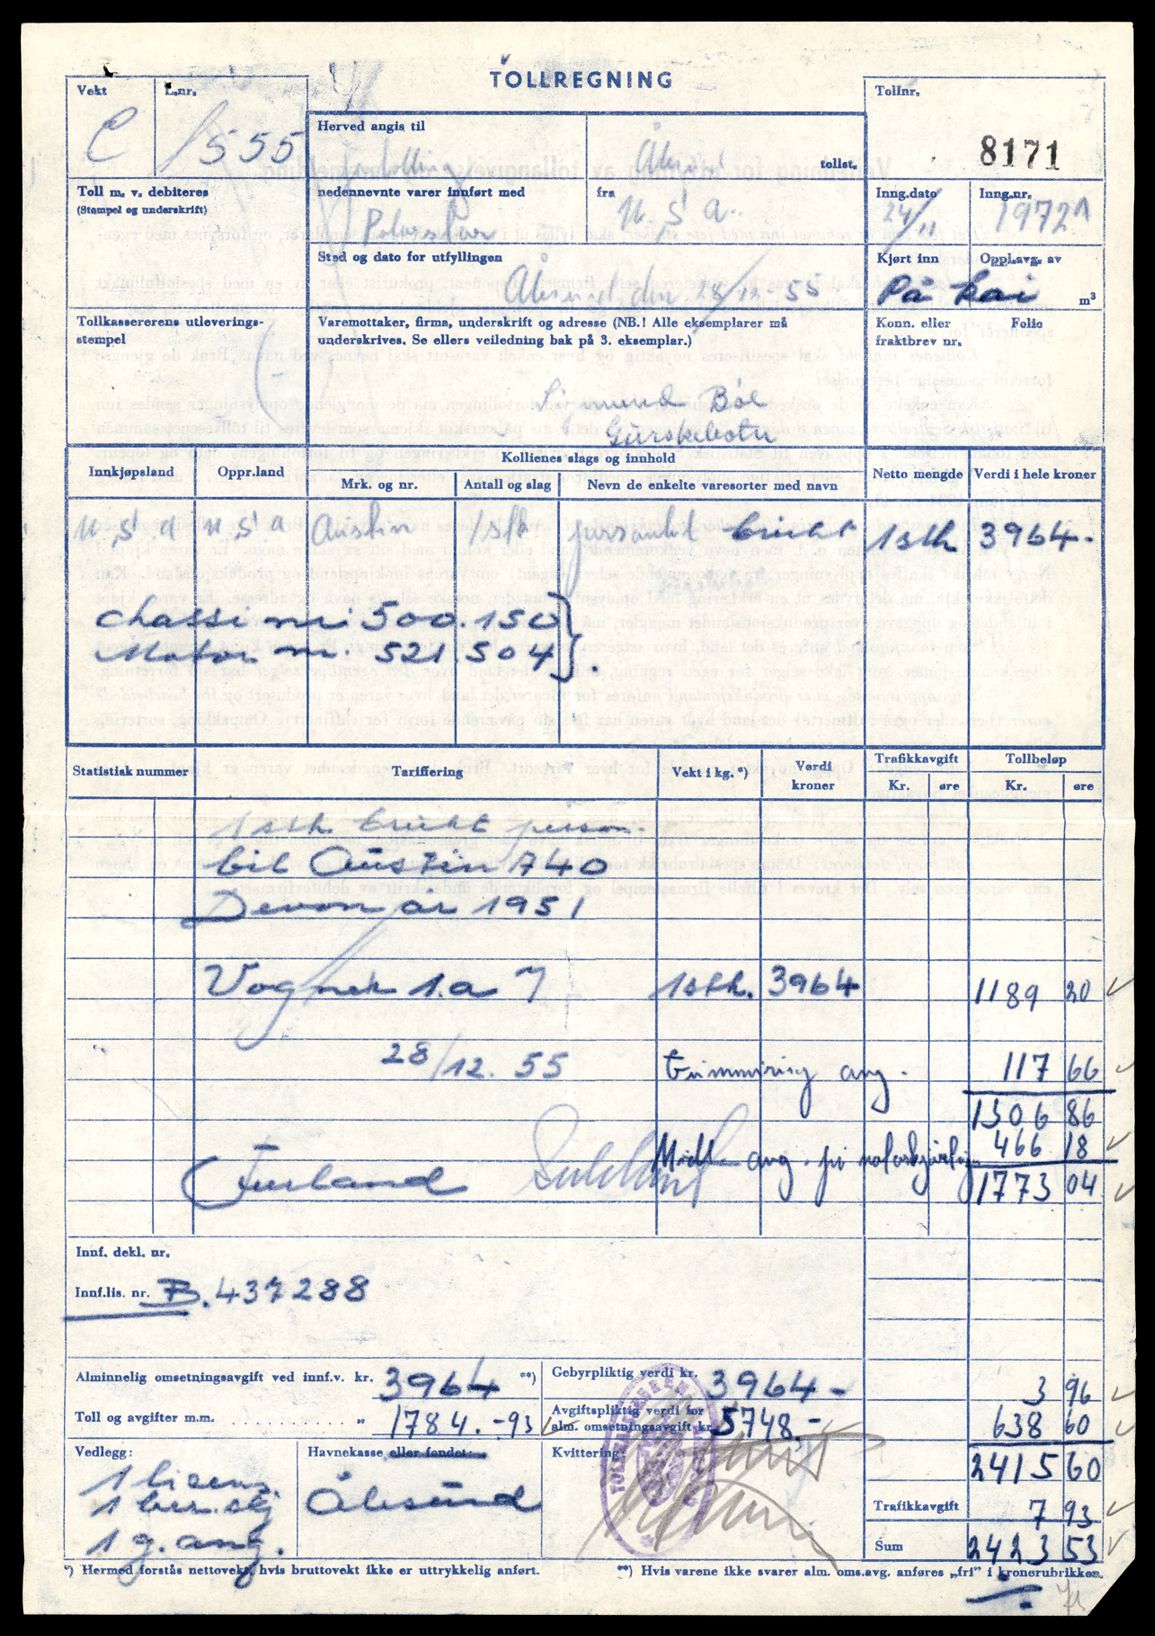 TOLLREGNING
Vekt
L.nr.
Tollnr.
C
1555
Herved angis til
fortolling
Ålesund
tollst.
8171
Toll m. v. debiteres
(Stempel og underskrift)
nedennevnte varer innført med
fra
Polarstar
U. S. A.
Inng.dato
Inng.nr.
24/11
1972A
Sted og dato for utfyllingen
Ålesund, den 28/12-55
Kjørt inn
Oppl.avg. av
På kai
m³
Tollkassererens utleverings-
stempel
Varemottaker, firma, underskrift og adresse (NB.! Alle eksemplarer må
underskrives. Se ellers veiledning bak på 3. eksemplar.)
Bøe
Gurskebotn
Konn. eller
fraktbrev nr.
Folio
Innkjøpsland
Oppr.land
Kollienes slags og innhold
Mrk. og nr.
Antall og slag
Nevn de enkelte varesorter med navn
Netto mengde
Verdi i hele kroner
U S A U S A Austin 1 stk personbil brukt 1 stk 3964.-
Chassi nr. 500.150
Motor nr. 521.504
Statistisk nummer
Tariffering
Vekt i kg. *)
Verdi
kroner
Trafikkavgift
Kr.
øre
Tollbeløp
Kr.
øre
1 stk. brukt person-
bil Austin A40
Devon år 1951
Vogner 1.a 7 1 stk. 3964 1189 20
28/12. 55 trimmining avg. 117 66
1306 86
Midl. avg. på motorkjøretøy 466 18
Furland 1773 04
Innf. dekl. nr.
Innf.lis. nr. B. 437288
Alminnelig omsetningsavgift ved innf.v. kr. 3964 **)
Gebyrpliktig verdi kr. 3964 -
3 96
Toll og avgifter m.m. . . . . . . . . . . „ 1784.-93
Avgiftspliktig verdi for
alm. omsetningsavgift kr. 5748.-
638 60
Vedlegg:
Havnekasse eller fondet:
Kvittering:
2415 60
1 lisens.
1 ber. stj
1 g. ang.
Ålesund
Trafikkavgift 7 93
Sum 2423 53
*) Hermed forstås nettovekt, hvis bruttovekt ikke er uttrykkelig anført.
**) Hvis varene ikke svarer alm. oms.avg. anføres „fri” i kronerubrikken.